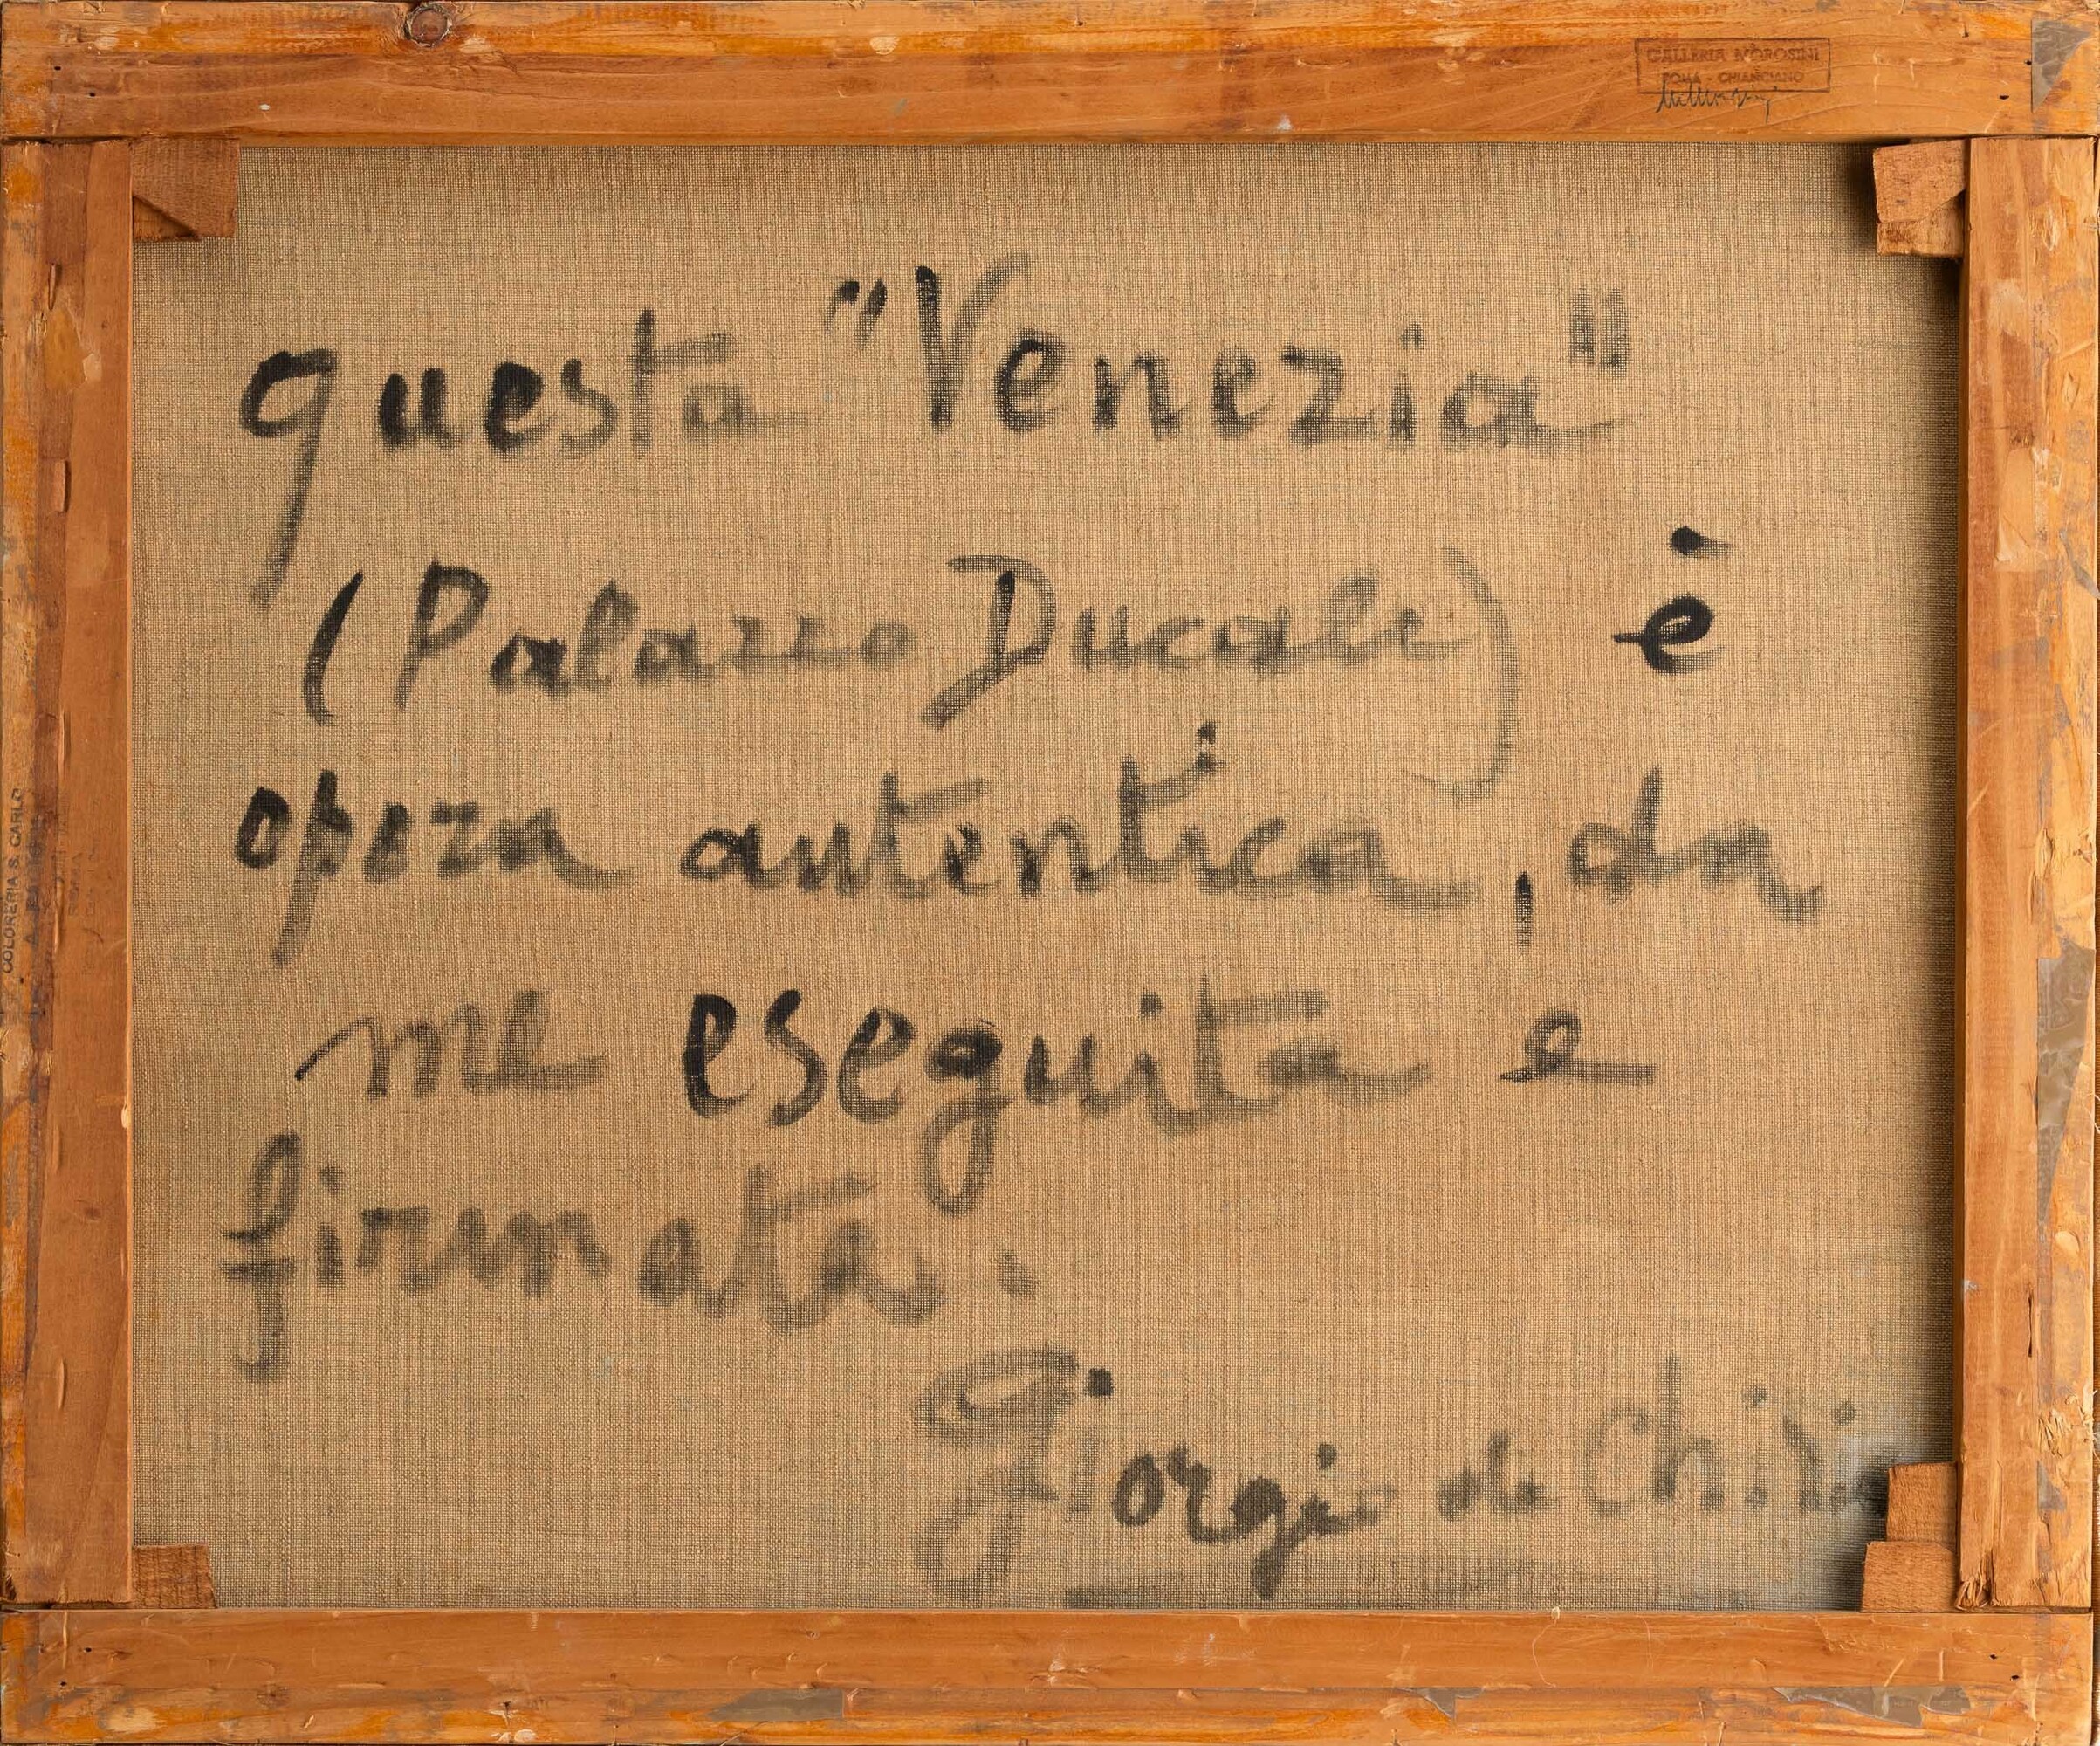 GALLERIA MOROSINI
ROMA - CHIANCIANO
questa "Venezia"
(Palazzo Ducale) è
opera autentica, da
me eseguita e
firmata.
Giorgio de Chiri
COLORERIA S. CARLO
ROMA